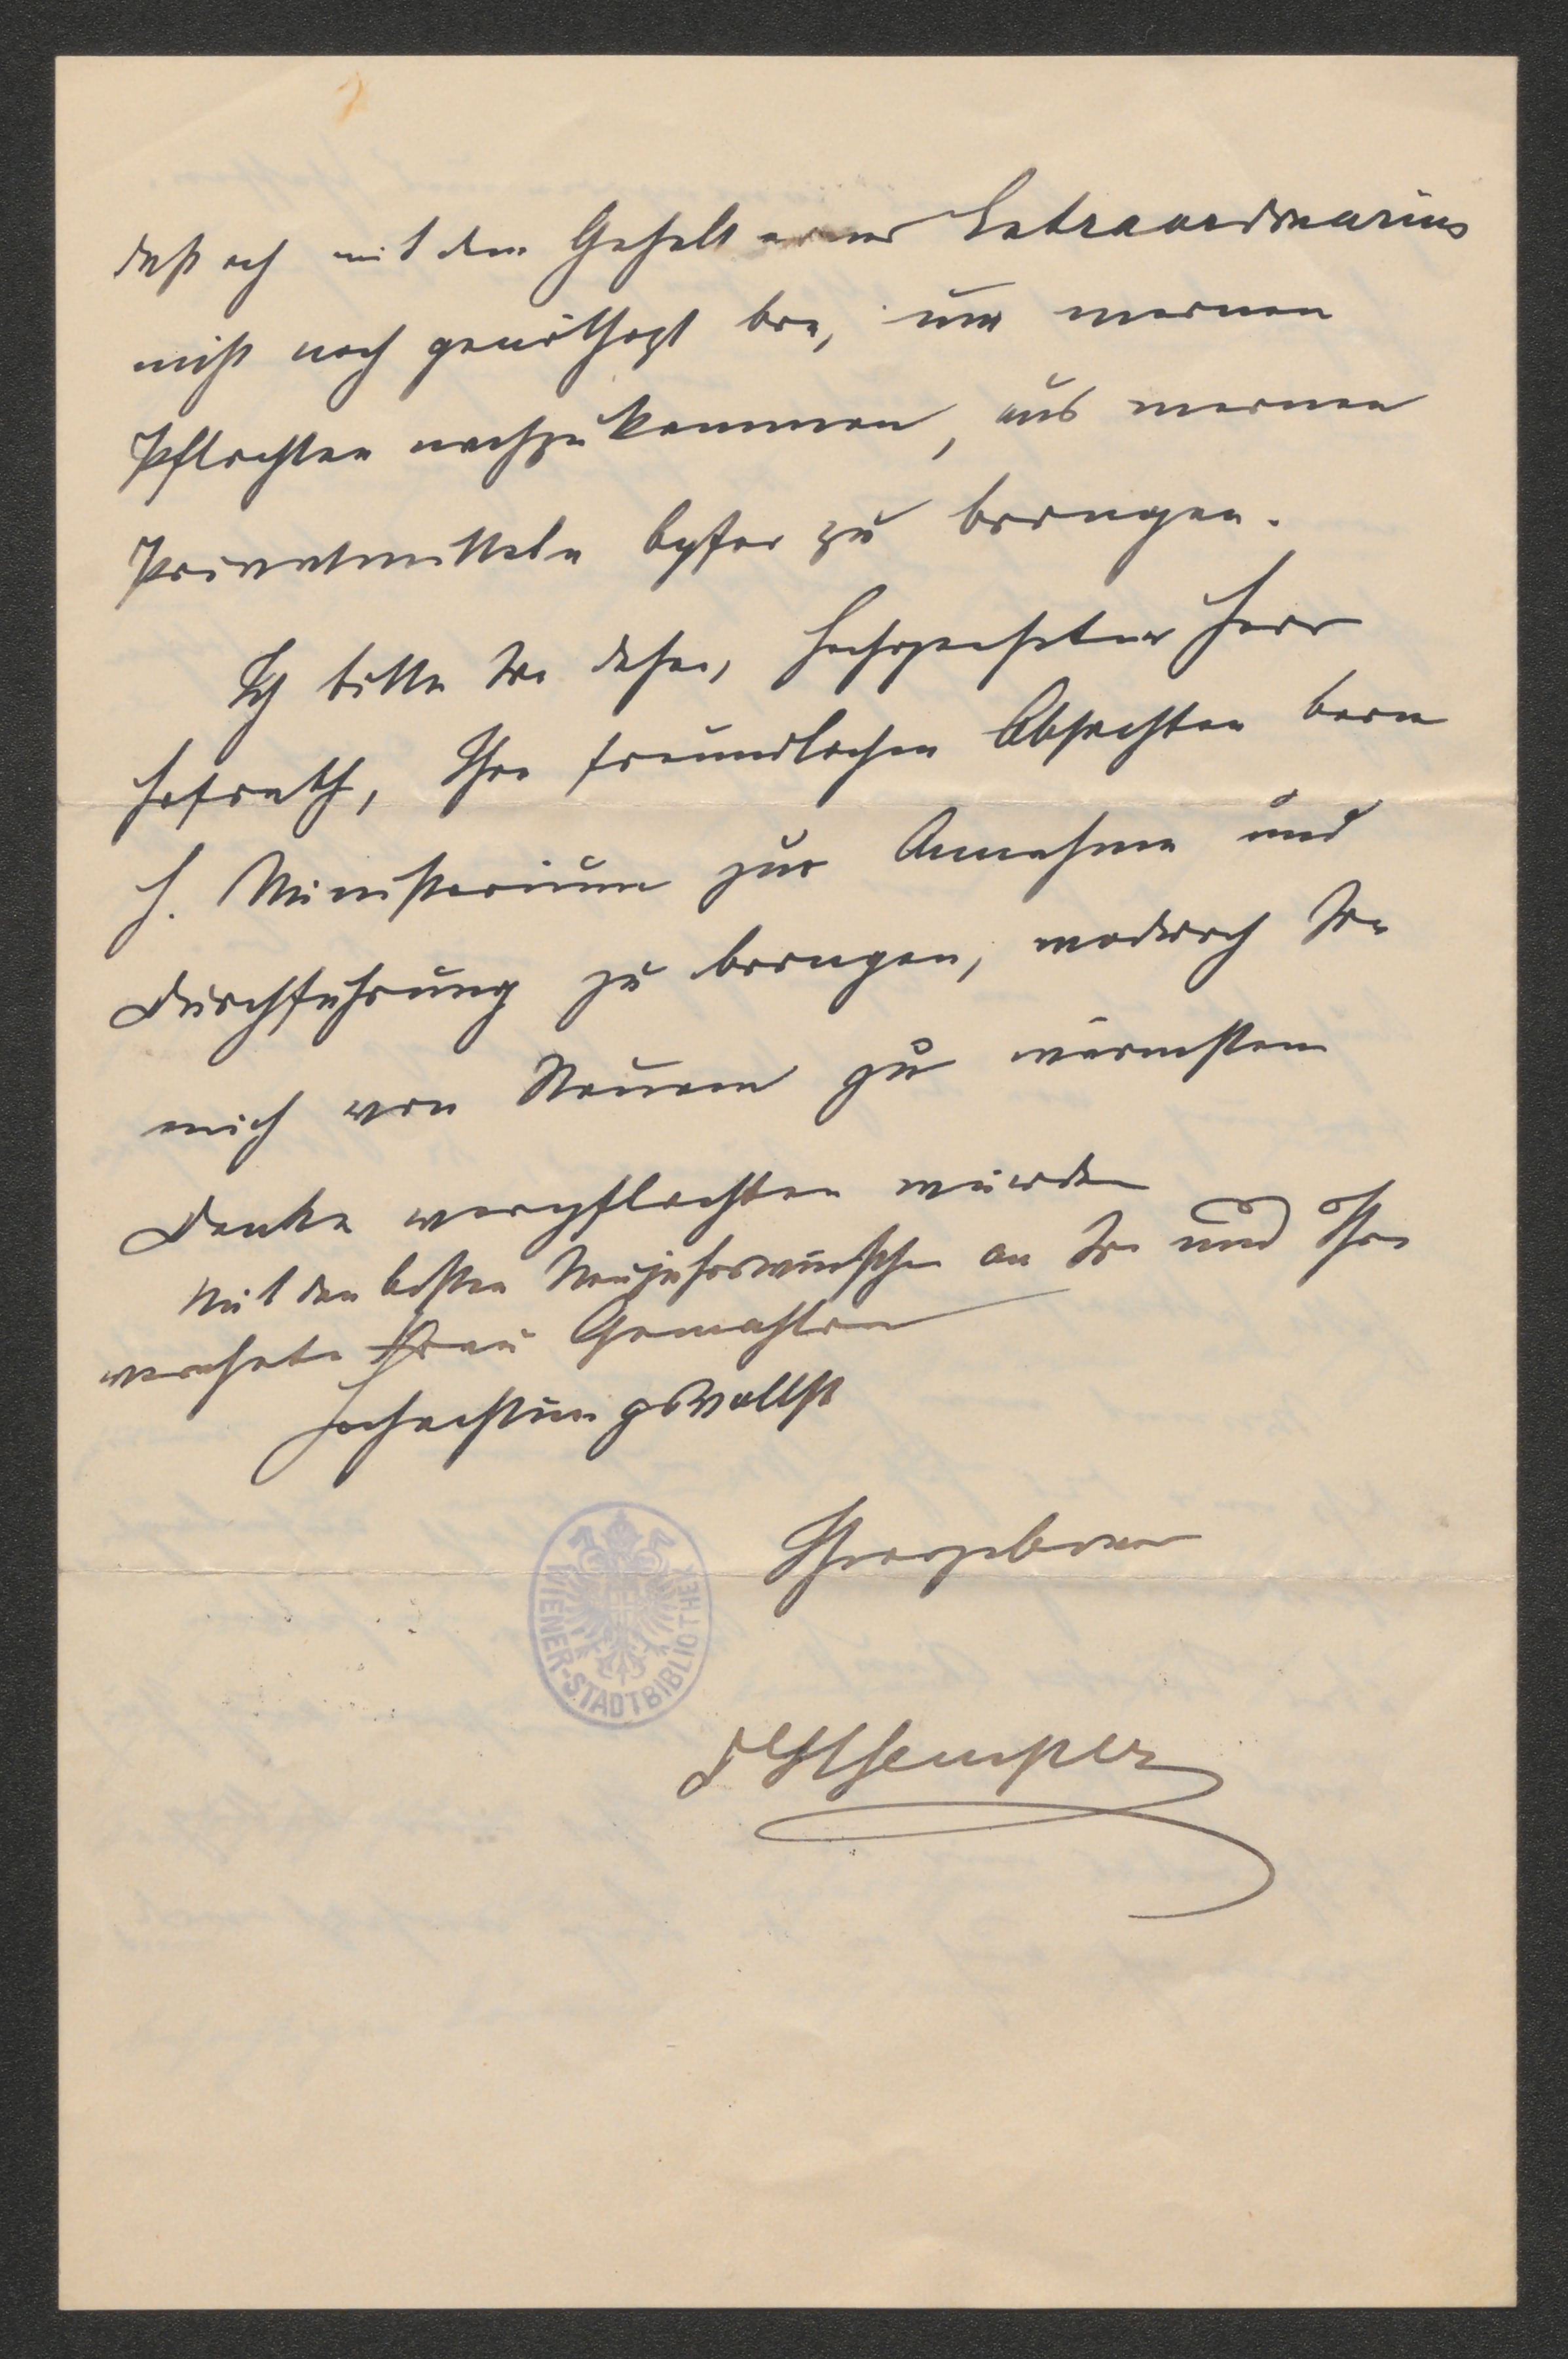 daß ich mit dem Gehalt eines Extraordinarius
nicht noch genöthigt bin, um meinen
Pflichten nachzukommen, aus meinen
Privatmitteln Opfer zu bringen.
Ich bitte Sie daher, hochgeehrter Herr
Hofrath, Ihre freundlichen Absichten beim
h. Ministerium zur Annahme und
Durchführung zu bringen, wodurch Sie
mich von Neuem zu wärmstem
Danke verpflichten würden
Mit den besten Neujahrswünschen an Sie und Ihre
verehrte Frau Gemahlin
Hochachtungsvollst
Ihr ergebener
WIENER-STADTBIBLIOTHEK